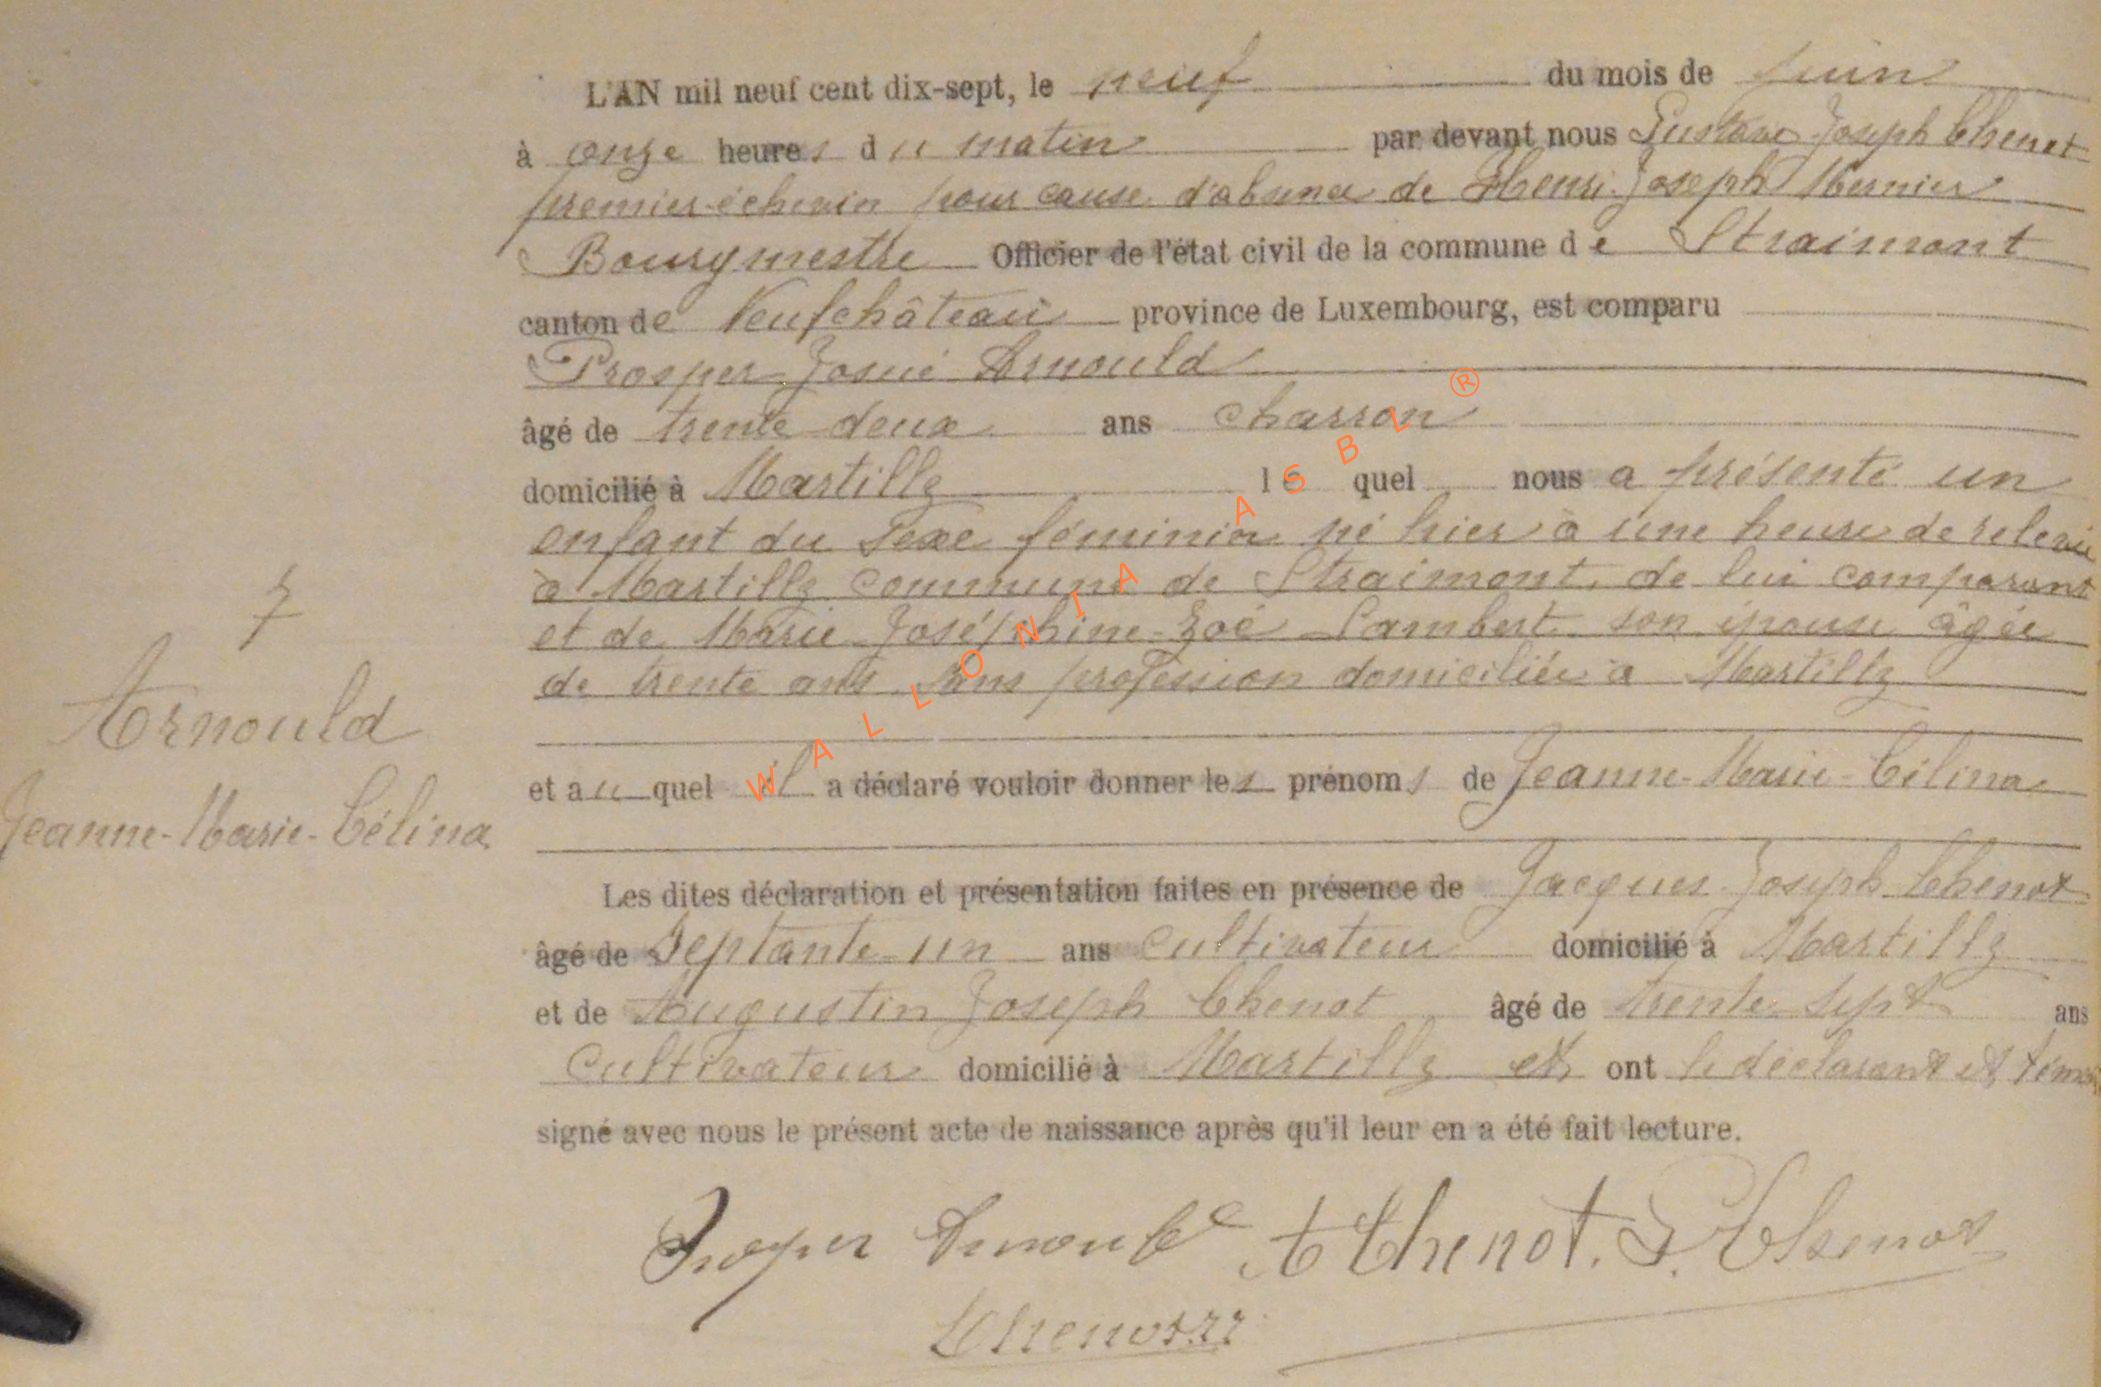 L'AN mil neuf cent dix-sept, le neuf du mois de juin
à onze heures du matin par devant nous Gustave Joseph Chenot
premier échevin pour cause d'absence de Henri Joseph Mernier
Bourgmestre Officier de l'état civil de la commune de Straimont
canton de Neufchâteau province de Luxembourg, est comparu
Prosper Josué Arnould
âgé de trente deux ans charron
domicilié à Martilly lequel nous a présenté un
enfant du sexe féminin né hier à une heure de relevée
à Martilly commune de Straimont, de lui comparant
et de Marie Joséphine-Zoé Lambert son épouse âgée
de trente ans sans profession domiciliée à Martilly
7
Arnould
Jeanne-Marie-Célina
et auquel il a déclaré vouloir donner les prénoms de Jeanne-Marie-Célina
Les dites déclaration et présentation faites en présence de Jacques Joseph Chenot
âgé de Septante-un ans cultivateur domicilié à Martilly
et de Augustin Joseph Chenot âgé de trente sept ans
Cultivateur domicilié à Martilly et ont le déclarant et témoins
signé avec nous le présent acte de naissance après qu'il leur en a été fait lecture.
Prosper Arnould A Chenot. G. Chenot
Chenot
WALLONIA ASBL ®